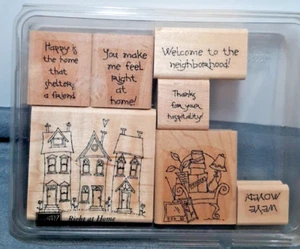 Happy is
the home
that
shelters
a friend
You make
me feel
right
at
home!
Welcome to the
neighborhood!
Thanks
for your
hospitality!
WE'VE
MOVED!
Right at Home